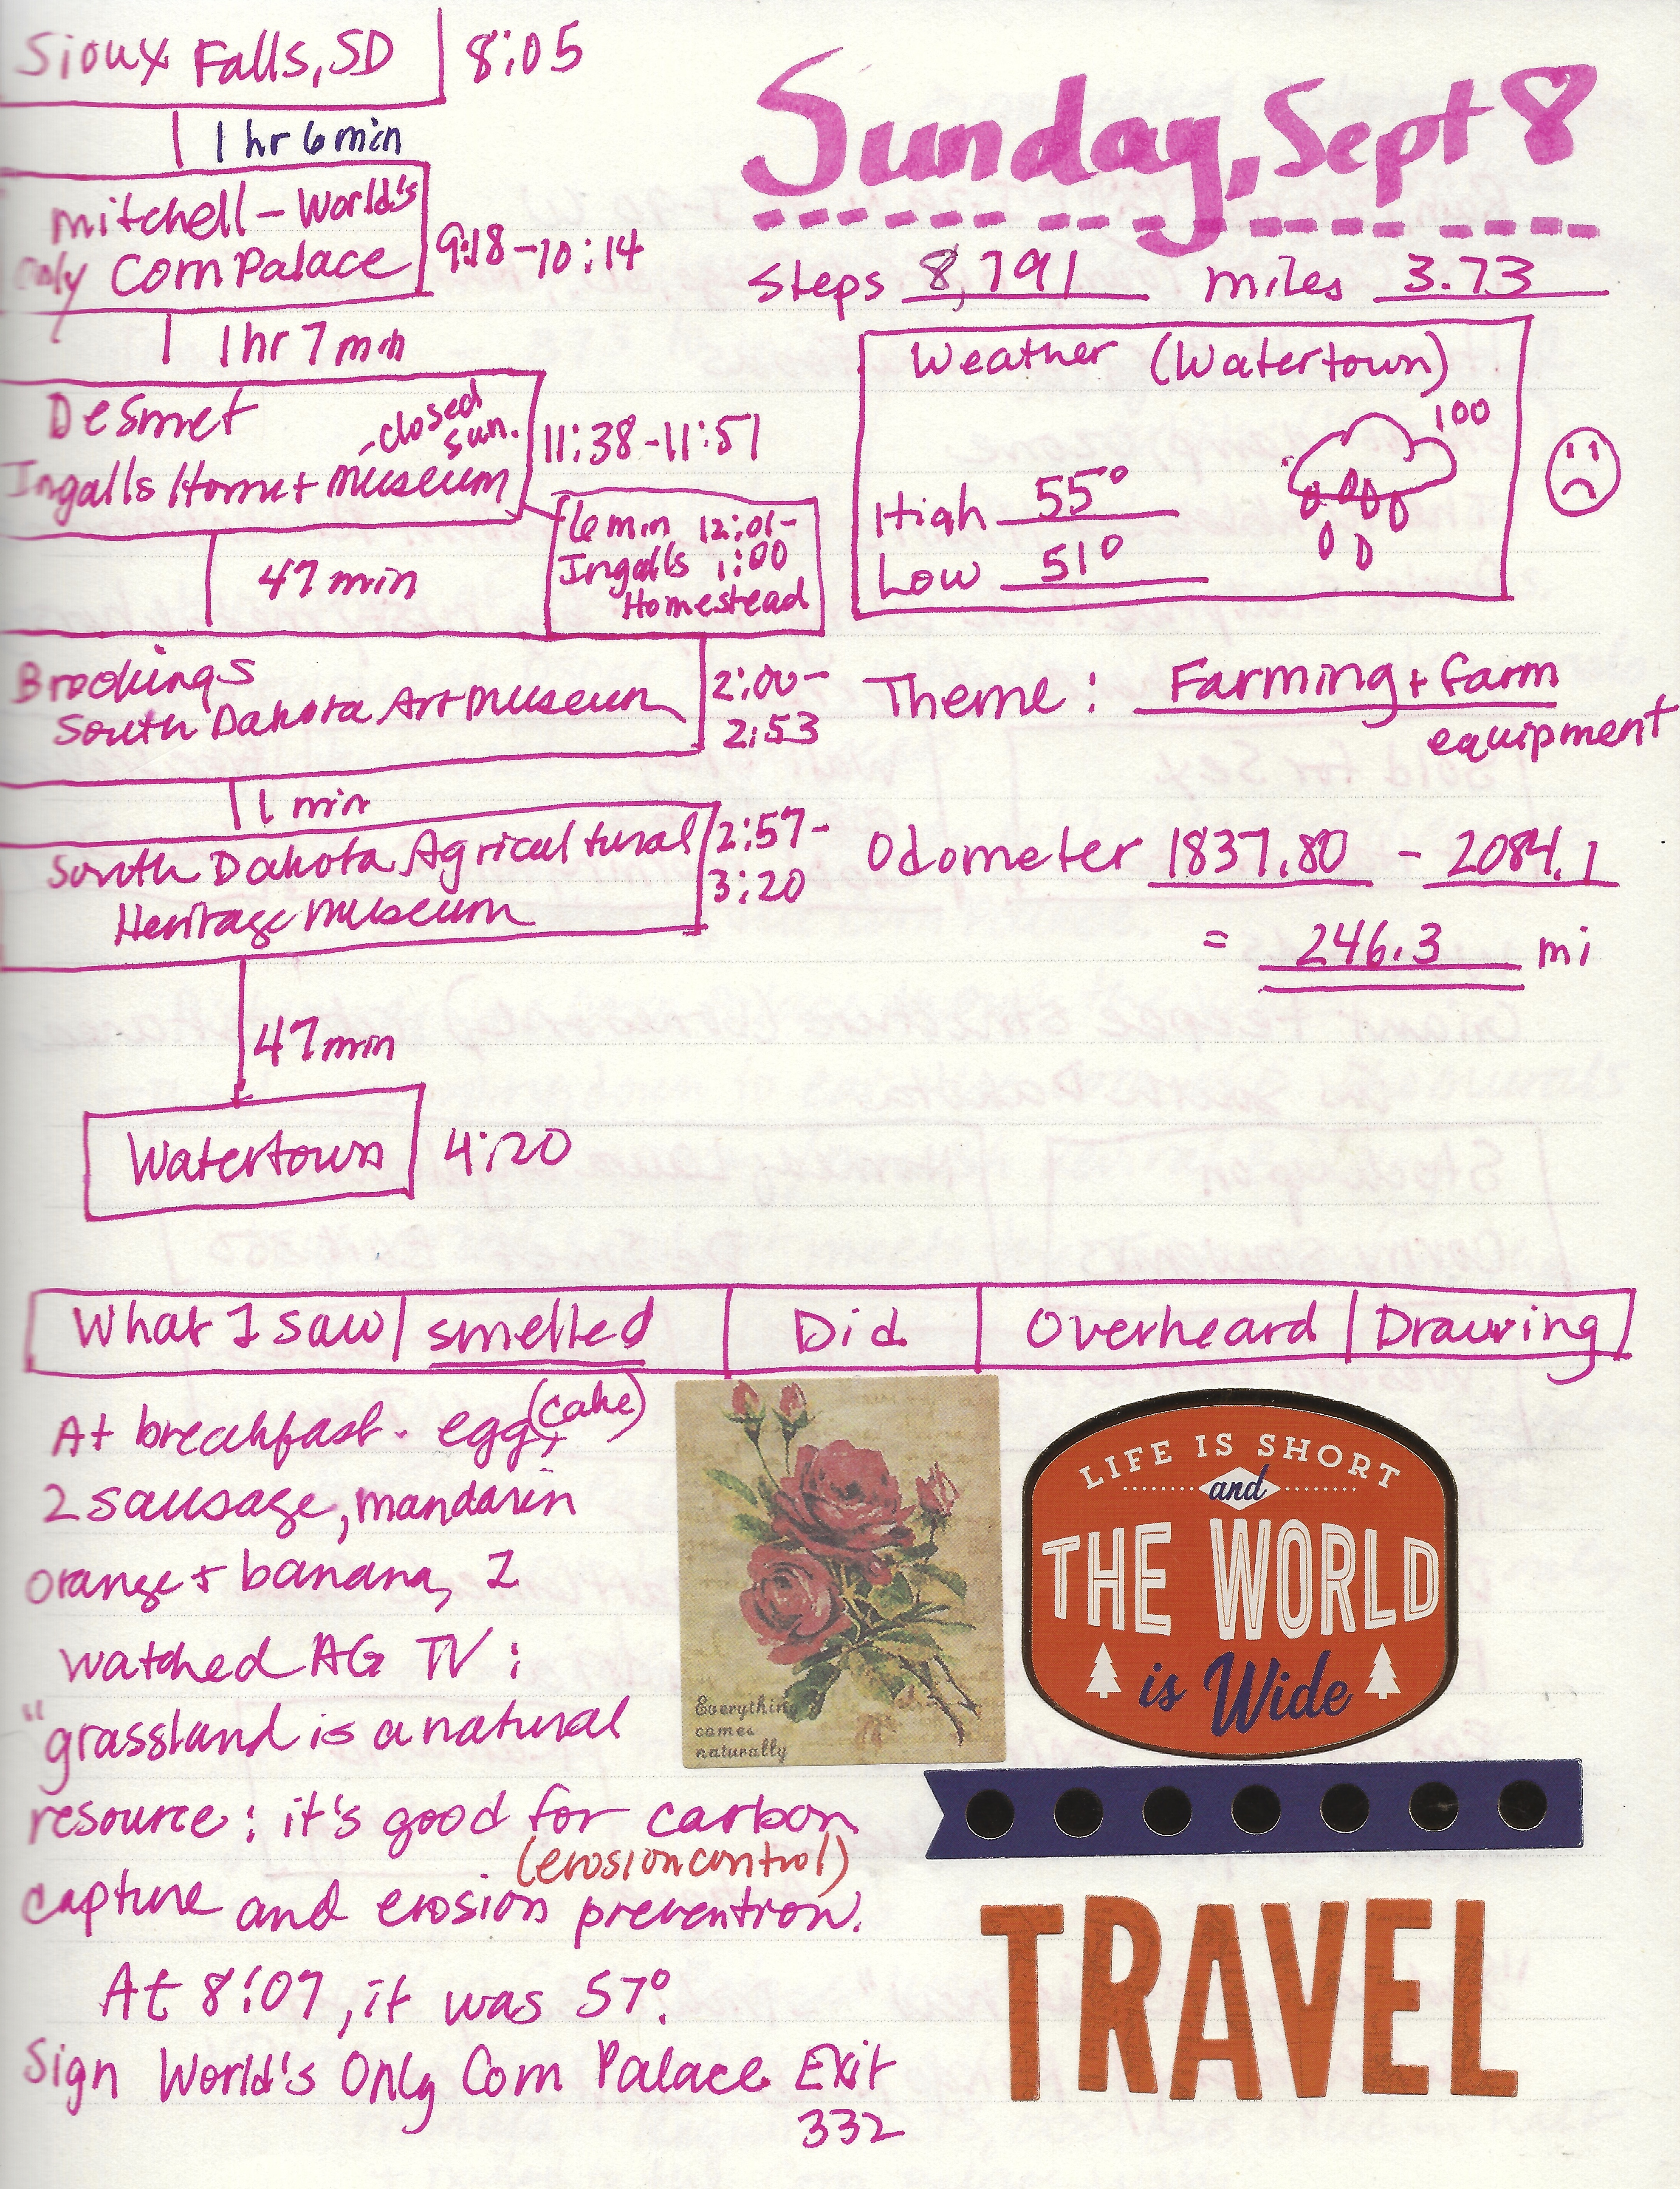 Sioux Falls, SD 8:05
1 hr 6 min
Mitchell - World's
only Corn Palace
9:18-10:14
1 hr 7 min
Desmet
- closed
sun.
Ingalls Home + Museum
11:38-11:51
6 min 12:01-
Ingalls 1:00
Homestead
47 min
Brookings
South Dakota Art Museum
2:00-
2:53
1 min
South Dakota Agricultural
Heritage Museum
2:57-
3:20
47 min
Watertown 4:20
Sunday, Sept 8
Steps 8,791 miles 3.73
Weather (Watertown)
100
High 55°
Low 51°
Theme: Farming + farm
equipment
Odometer 1837.80 - 2084.1
= 246.3 mi
What I saw smelled Did Overheard Drawing
At breakfast - egg, (cake)
2 sausage, mandarin
orange + banana, I
watched AG TV:
"grassland is a natural
resource: it's good for carbon
(erosion control)
capture and erosion prevention.
At 8:07, it was 57°.
Sign World's Only Corn Palace Exit
332
Everything
comes
naturally
LIFE IS SHORT
and
THE WORLD
is Wide
TRAVEL